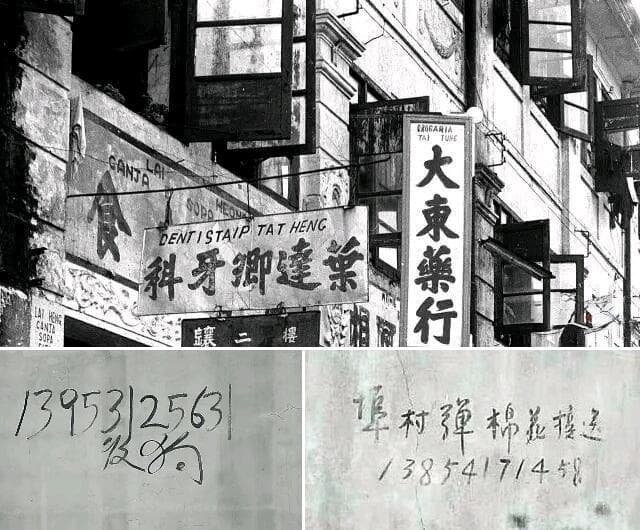 LAI
CANJA
SOPA
食
DENTISTA IP TAT HENG
葉達卿牙科
樓二鑲
DROGARIA
TAI TUNG
大東藥行
LAI HENG
CANJA
SOPA
13953125631
狗
埠村弹棉花接送
13854171458